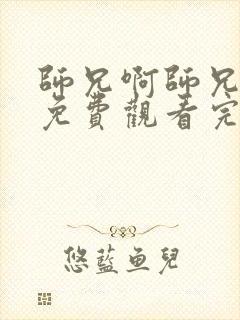 師兄啊師兄
免費觀看完
悠藍魚兒